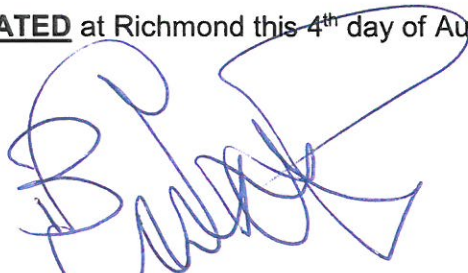 ATED at Richmond this 4th day of Au